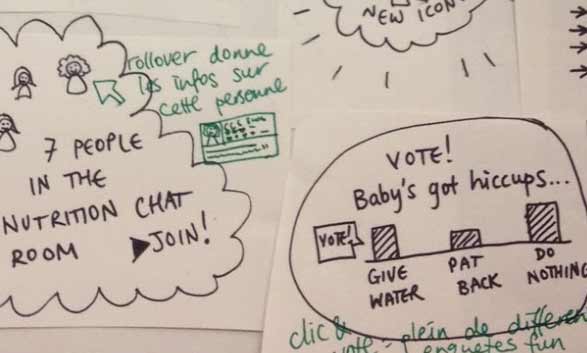 NEW ICON
rollover donne
les infos sur
cette personne
7 PEOPLE
IN THE
NUTRITION CHAT
ROOM ▶JOIN!
VOTE!
Baby's got hiccups...
VOTE!
GIVE
WATER
PAT
BACK
DO
NOTHING
clic &
plein de différen
enquetes fun